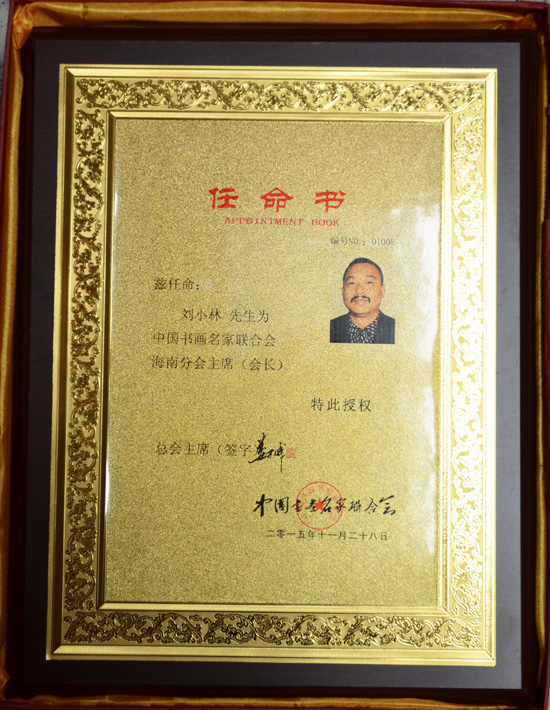 任命书
APPOINTMENT BOOK
编号NO.：01008
兹任命：
刘小林 先生为
中国书画名家联合会
海南分会主席（会长）
特此授权
总会主席（签字
中国书画名家联合会
二零一五年十一月二十八日